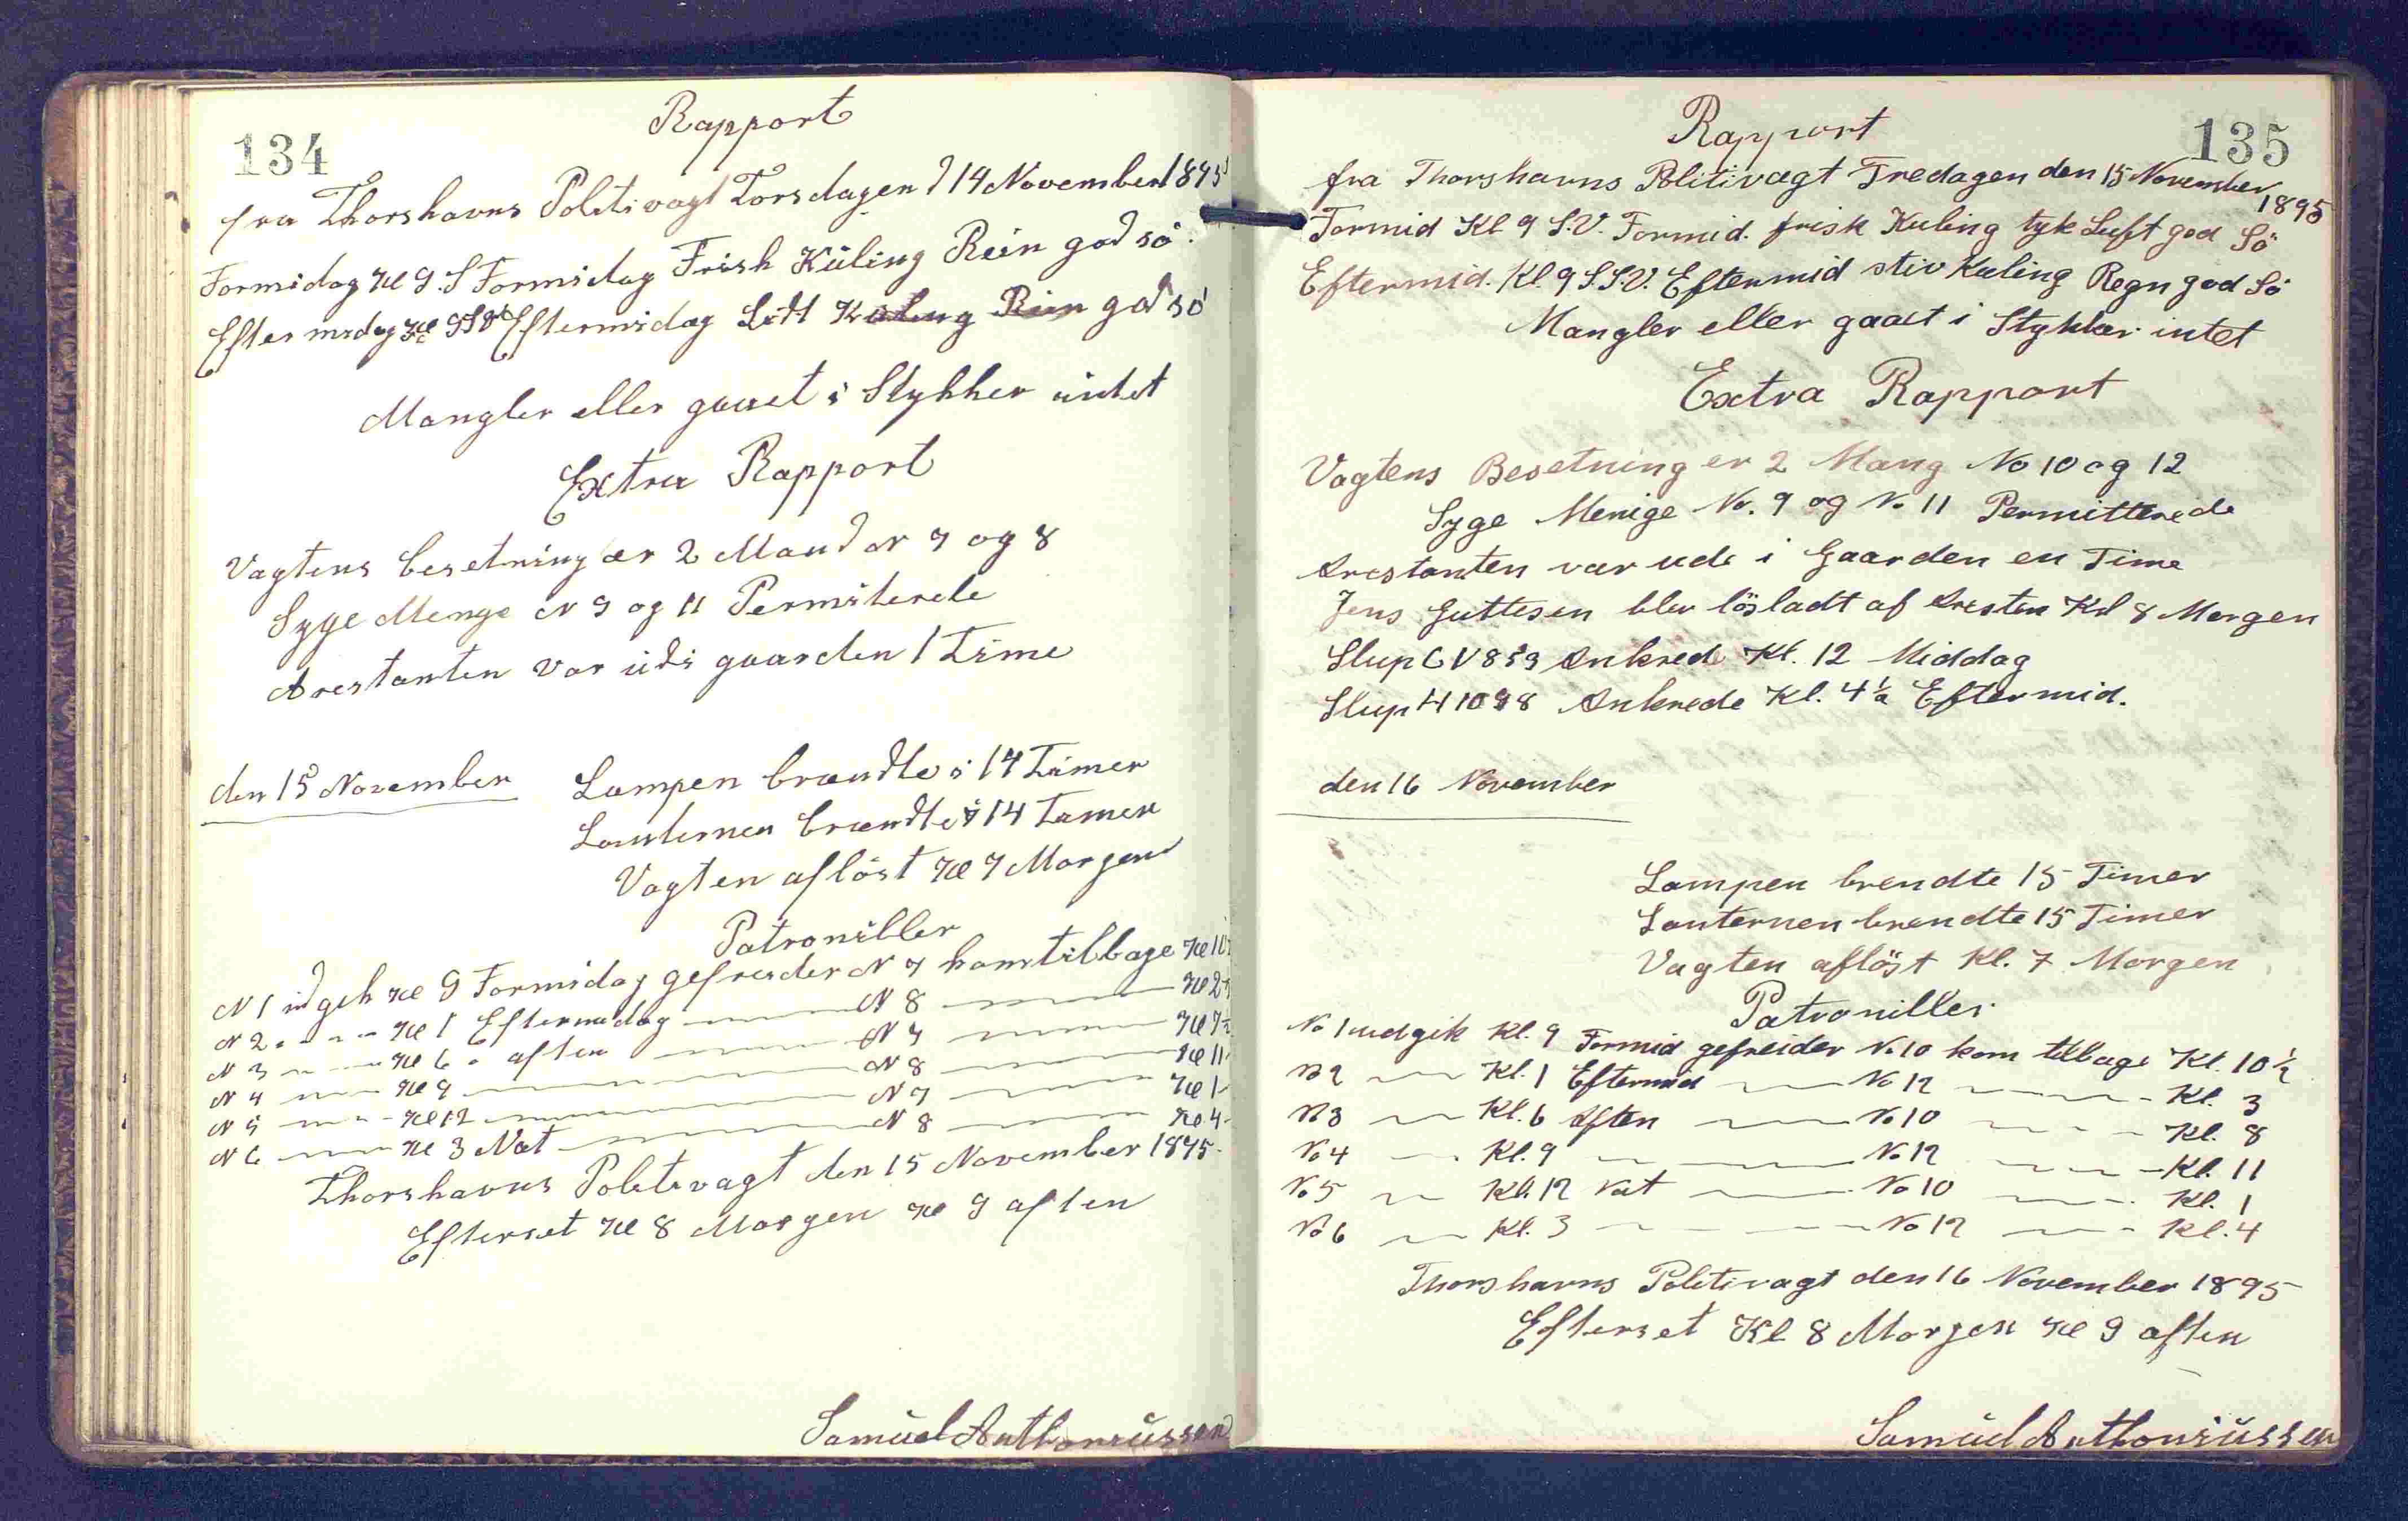 134
Rapport
fra Thorshavns Politivagt Torsdagen d 14 November 1895
Formidag Kl 9. S Formidag Frisk Kuling Rein god sö.
Eftermidag Kl 9 Eftermidag Lidt Kuling Rein god sö
Mangler eller gaaet i Stykker intet
Extra Rapport
Vagtens besetning er 2 Mand N 7 og 8
Syge Menge N 9 og 11 Permiterede
Arestanten var udi gaarden 1 Time
den 15 November
Lampen brændte i 14 Timer
Lanternen brændte i 14 Timer
Vagten aflöst Kl 7 Morgen
Patroniller
N 1 udgek Kl 9 Formidag gefreider N 7 kom tilbage Kl 10
N 2 Kl 1 Eftermidag N 8 Kl 2
N 3 Kl 6 aften N 7 Kl 7½
N 4 Kl 9 N 8 Kl 11
N 5 Kl 12 N 7 Kl 1
N 6 Kl 3 Nat N 8 Kl 4
Thorshavns Politivagt den 15 November 1895
Efterset Kl 8 Morgen Kl 9 aften
Samuel Anthoniussen
135
Rapport
fra Thorshavns Politivagt Fredagen den 15 November 1895
Formid Kl 9 S.V. Formid. frisk Kuling tyk Luft god Sö
Eftermid. Kl. 9 S.S.V. Eftermid stiv Kuling Regn god Sö
Mangler eller gaaet i Stykker intet
Extra Rapport
Vagtens Besetning er 2 Mang No 10 og 12
Syge Menige No. 9 og No 11 Permitterede
Arestanten var ude i Gaarden en Time
Jens Guttesen blev lösladt af Aresten Kl 8 Morgen
Slup GV 859 Ankrede Kl. 12 Middag
Slup H 1098 Ankrede Kl. 4½ Eftermid.
den 16 November
Lampen brendte 15 Timer
Lanternen brendte 15 Timer
Vagten aflöst Kl. 7 Morgen
Patroniller
No 1 udgik Kl. 9 Formid gefreider No 10 kom tilbage Kl. 10½
No 2 Kl. 1 Eftermid No 12 Kl. 3
No 3 Kl. 6 Aften No 10 Kl. 8
No 4 Kl. 9 No 12 Kl. 11
No 5 Kl. 12 Nat No 10 Kl. 1
No 6 Kl. 3 No 12 Kl. 4
Thorshavns Politivagt den 16 November 1895
Efterset Kl 8 Morgen Kl 9 aften
Samuel Anthoniussen